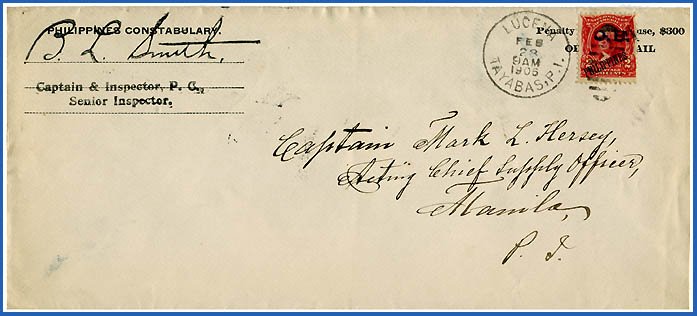 PHILIPPINES CONSTABULARY.
B. L. Smith,
Captain & Inspector, P. C.,
Senior Inspector.
LUCENA
FEB
28
9AM
1905
TAYABAS, P.I.
Penalty use, $300
O.B.
PHILIPPINES
Captain Mark L. Hersey,
Acting Chief Supply Officer,
Manila,
P. I.